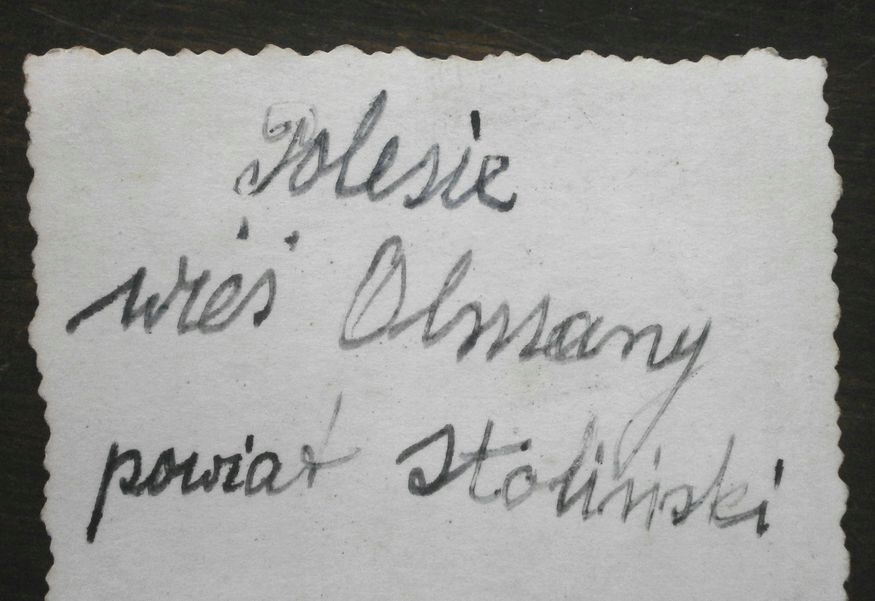 Polesie
wieś Olmany
powiat Stoliński